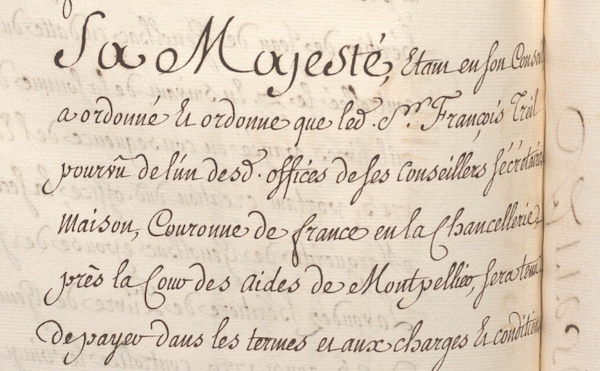 Sa Majesté, Etant en son Conseil
a ordonné Et ordonne que led. Sr. François Treil
pourvû de l'un desd. offices de ses Conseillers Sécrétaires
Maison, Couronne de france en la Chancellerie
près la Cour des aides de Montpellier, sera tenu
de payer dans les termes et aux charges Et conditions